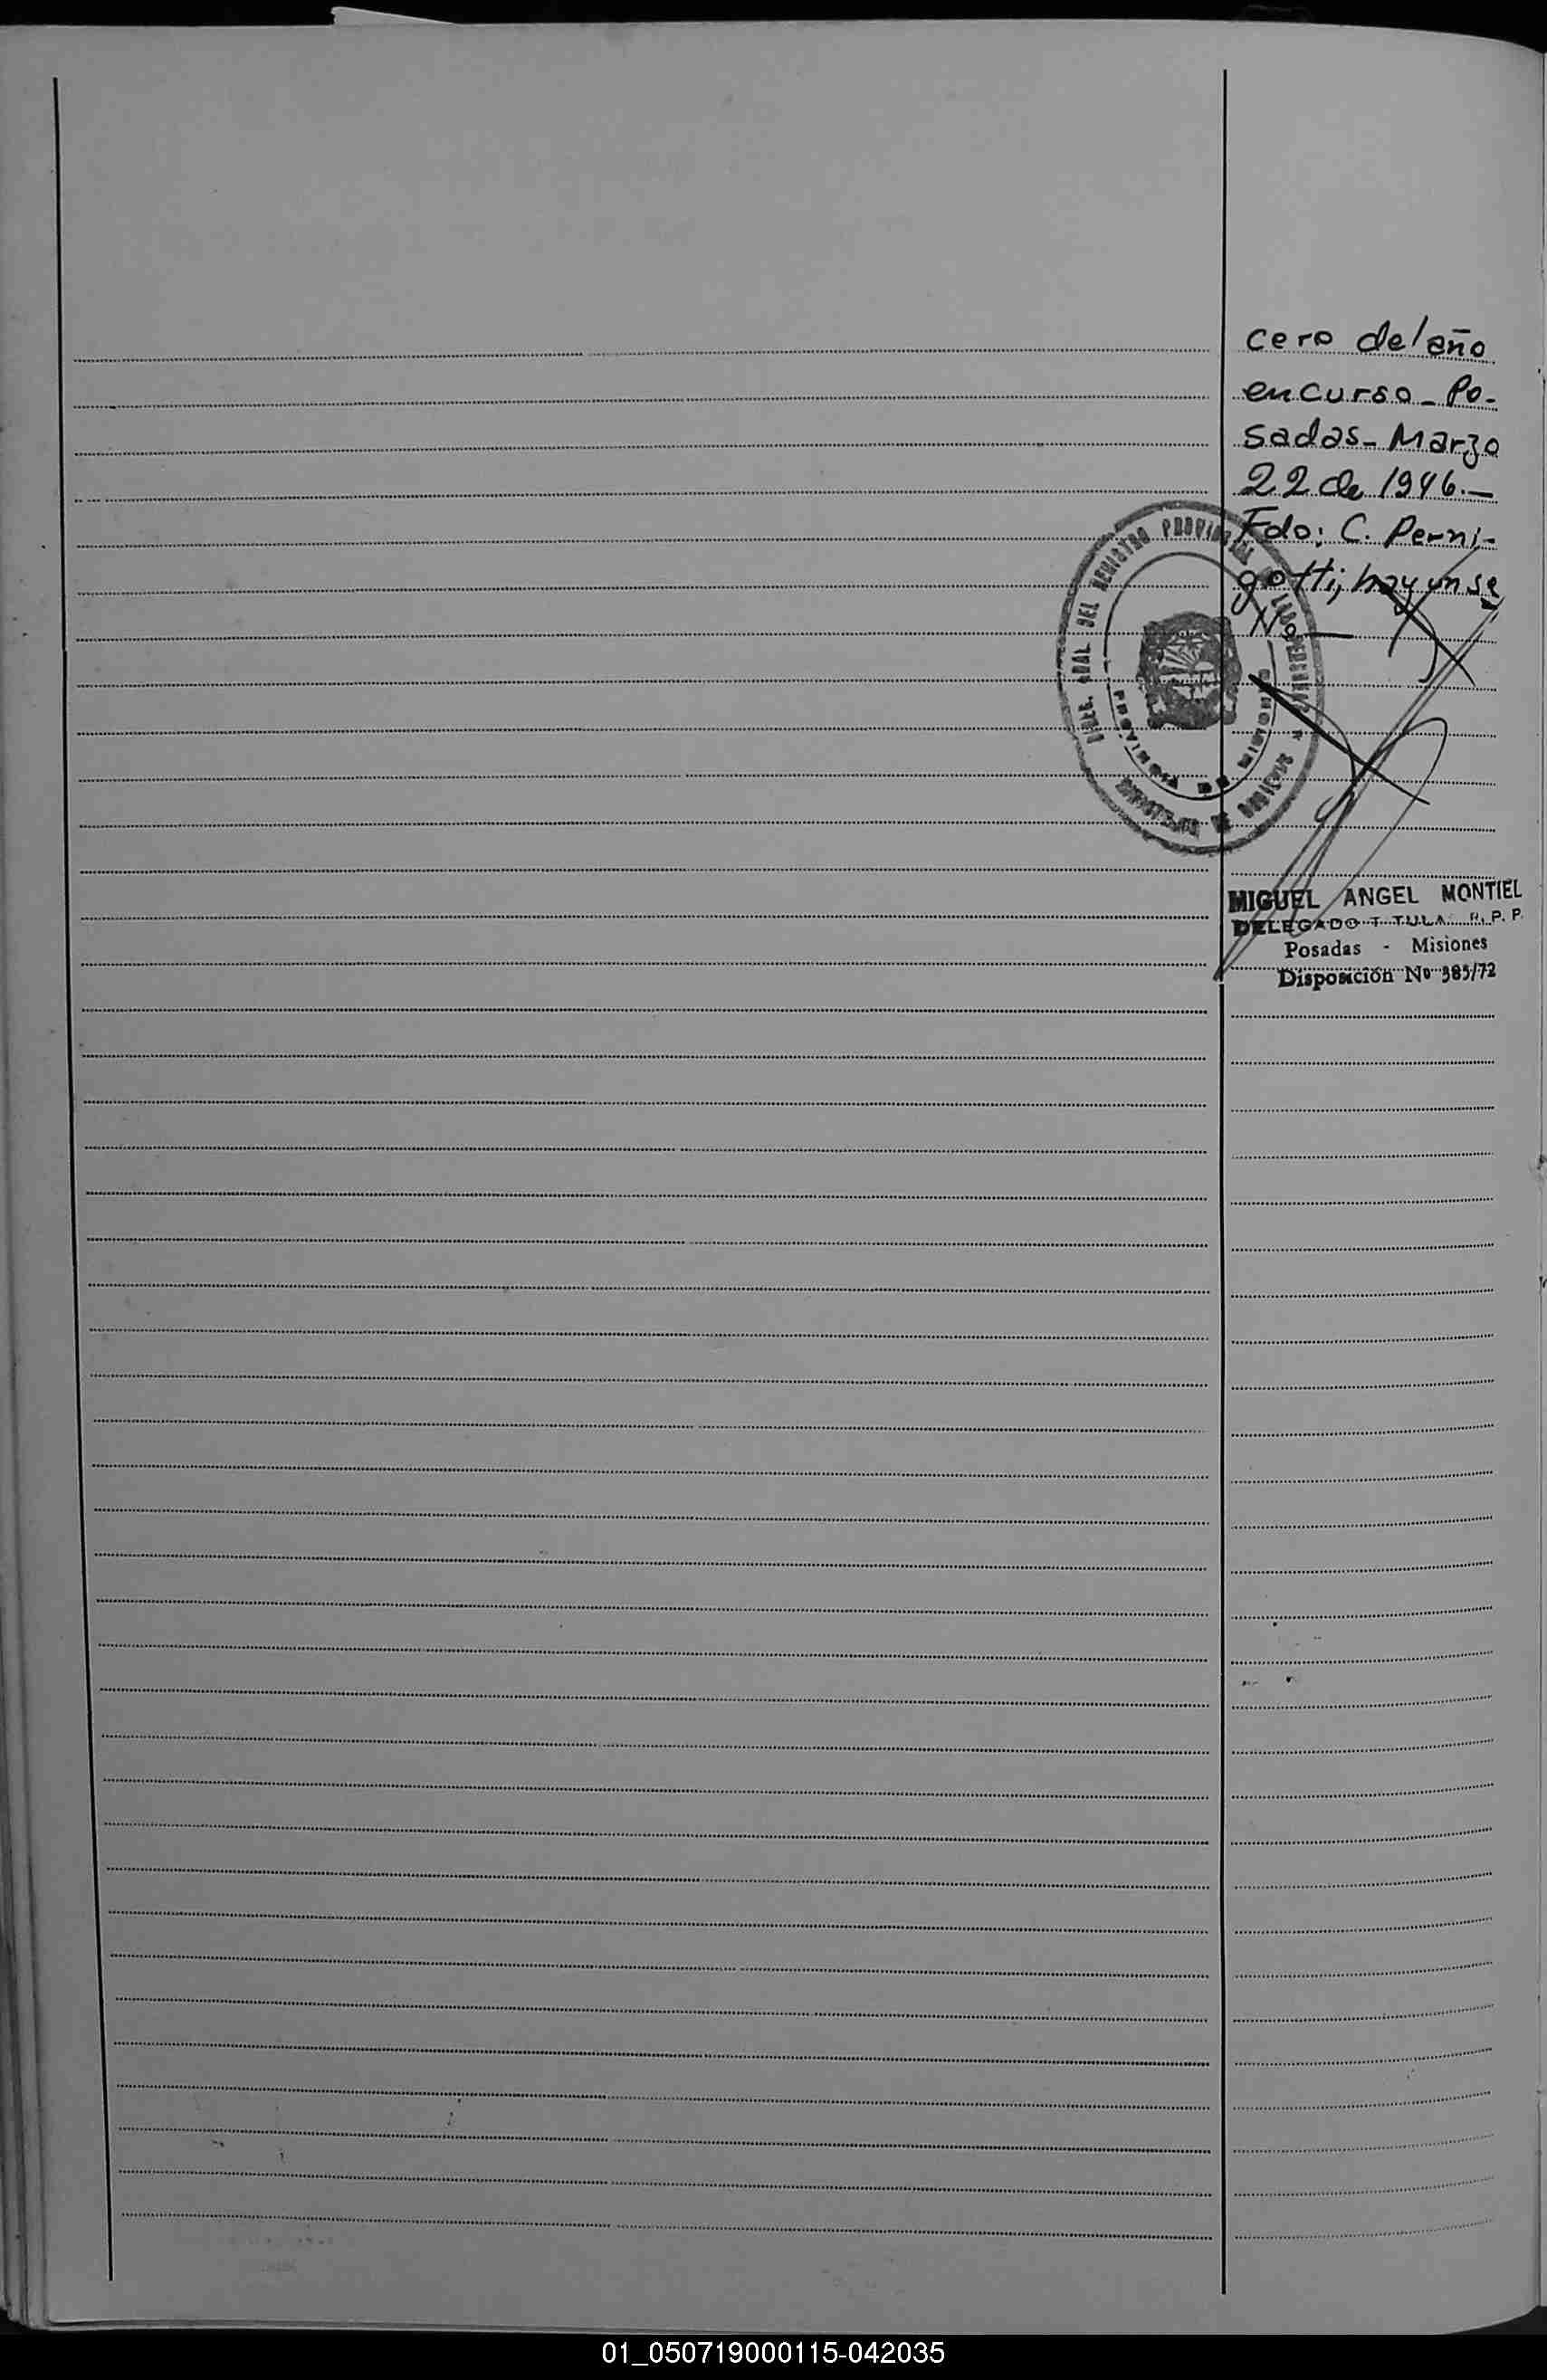 cero del año
en curso_ Po-
sadas_ Marzo
22 de 1946.—
Fdo: C. Perni-
gotti; hay un se
llo—
DIREC. GRAL DEL REGISTRO PROVINCIAL DE LAS PERSONAS
PROVINCIA DE MISIONES
MIGUEL ANGEL MONTIEL
DELEGADO TITULAR R. P. P.
Posadas - Misiones
Disposición Nº 385/72
01_050719000115-042035